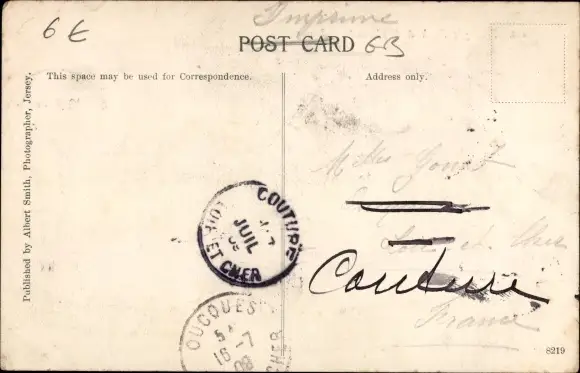 Imprimé
6 E
POST CARD 6B
This space may be used for Correspondence.
Address only.
Published by Albert Smith, Photographer, Jersey.
COUTURE
JUIL
LOIR ET CHER
Loir et Cher
Couture
France
OUCQUES
16 -7
08
CHER
8219